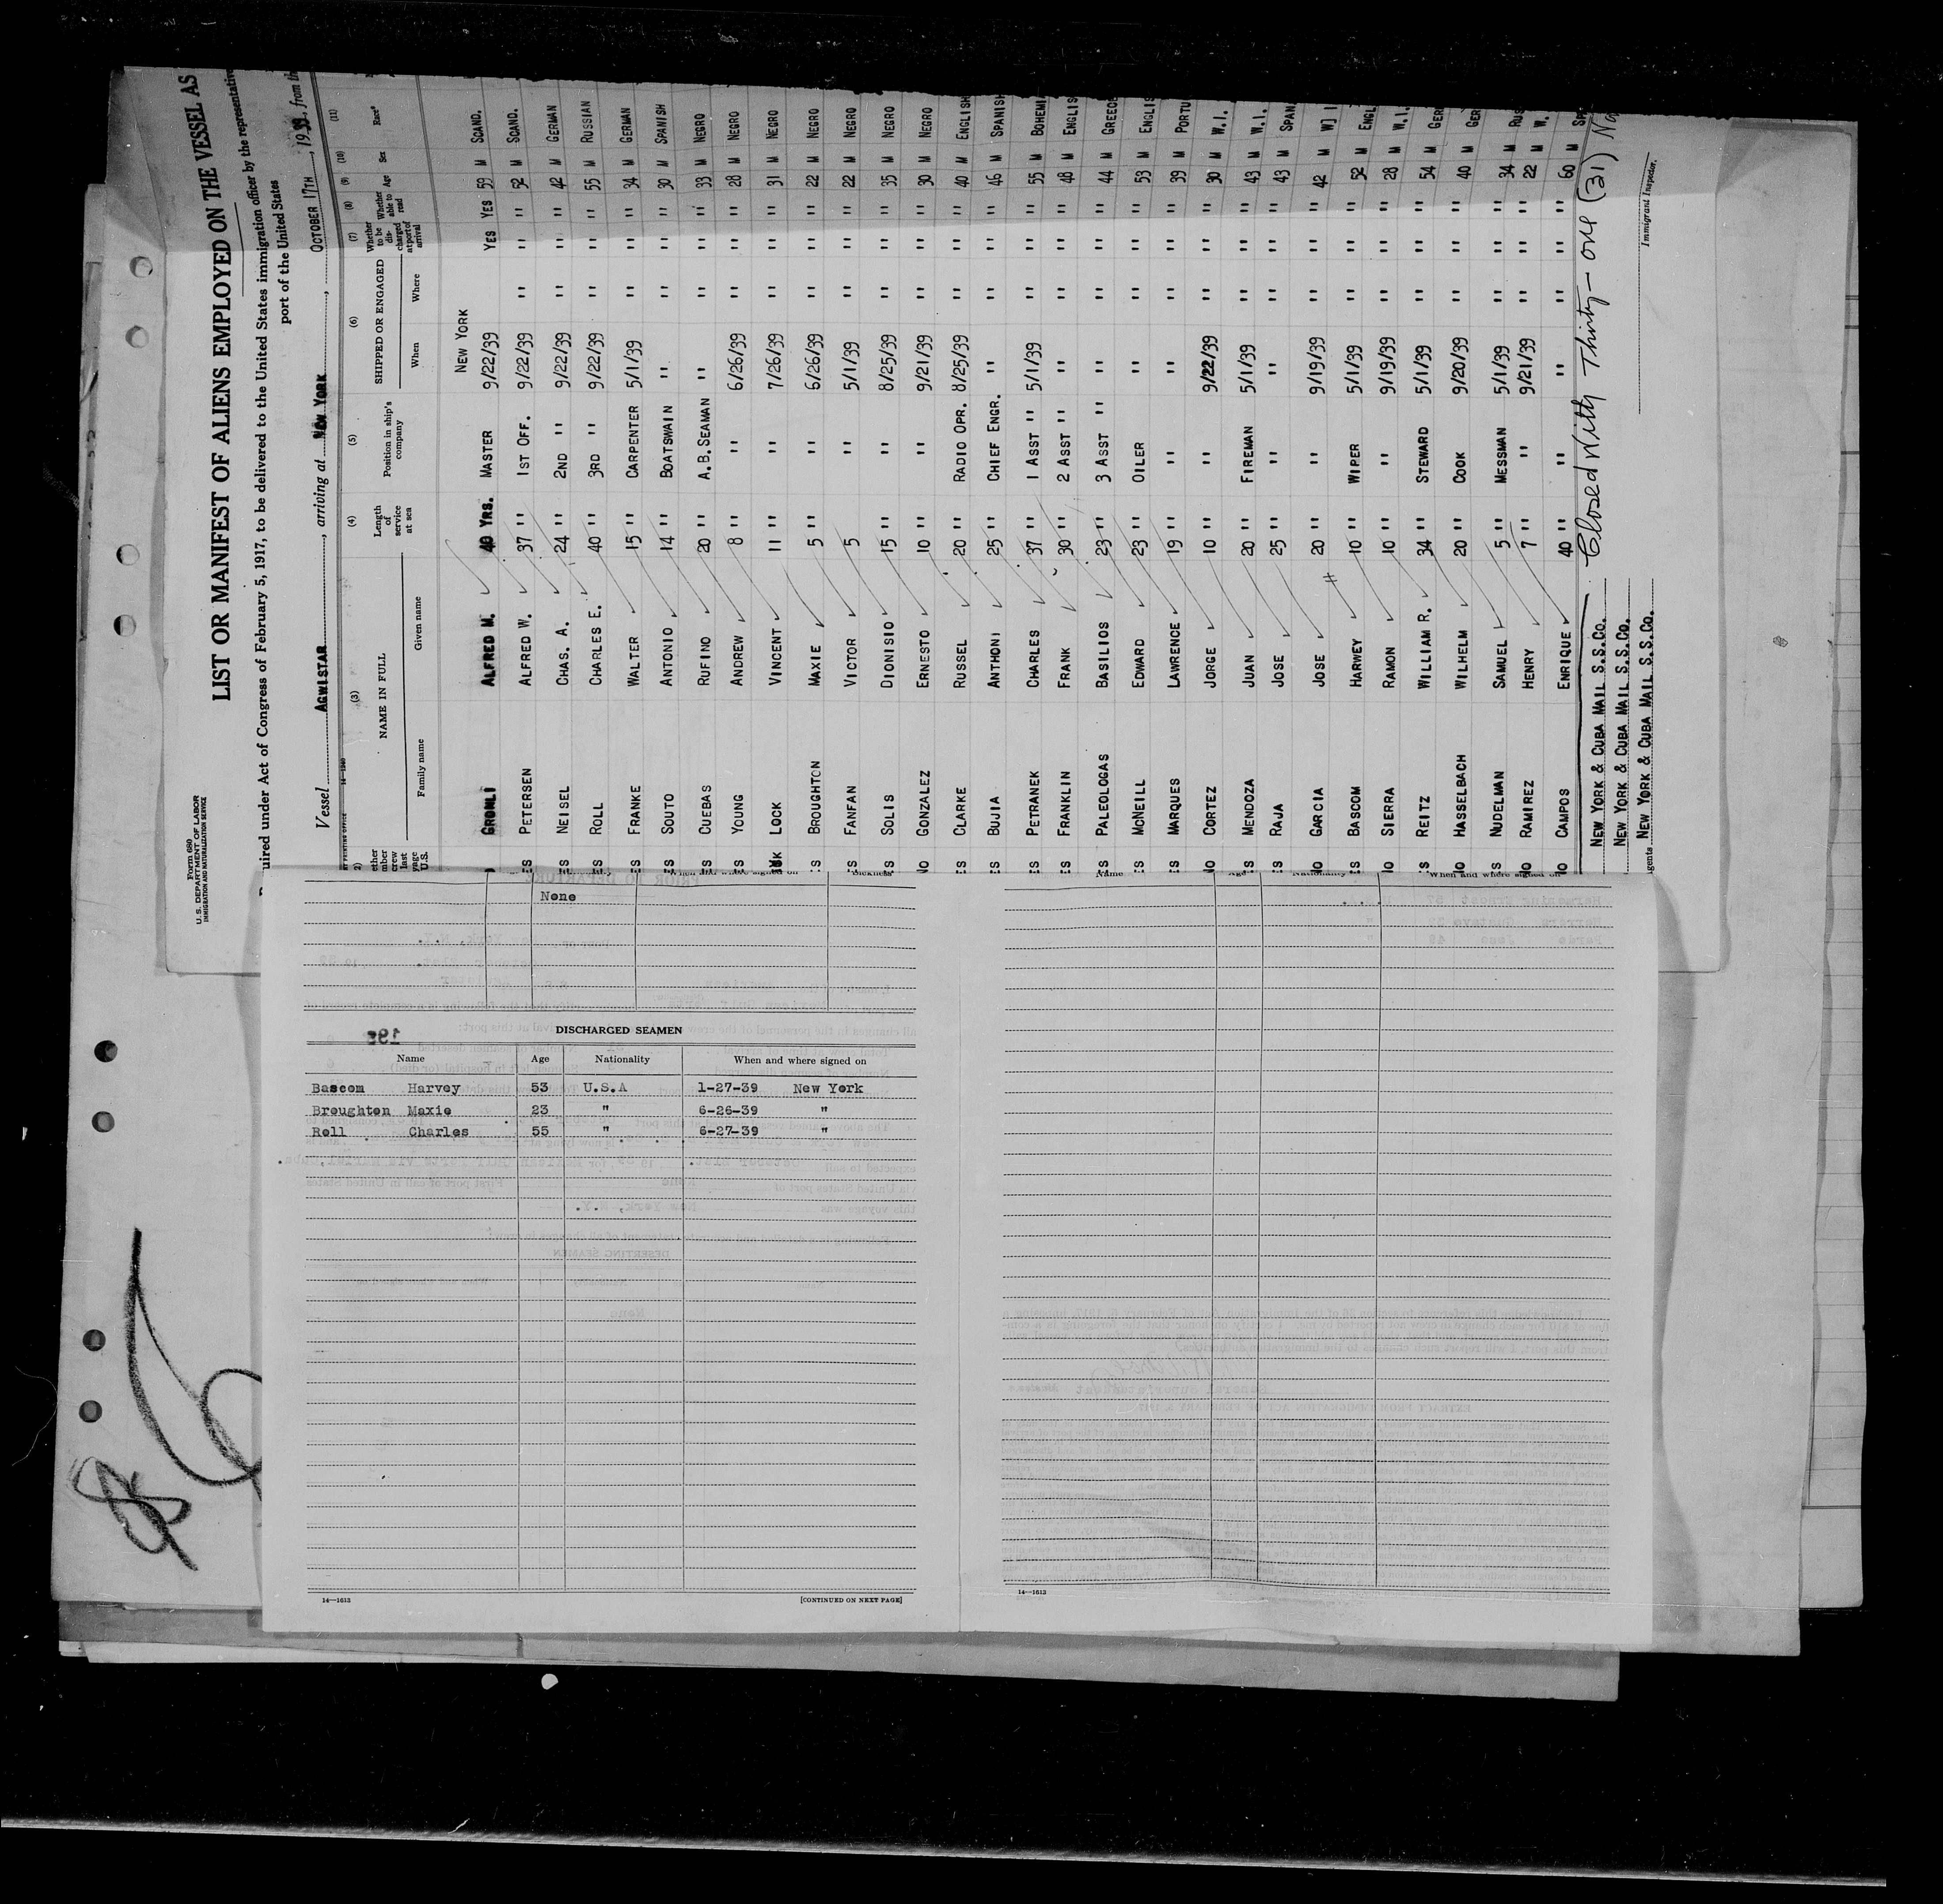 Form 680
U. S. DEPARTMENT OF LABOR
IMMIGRATION AND NATURALIZATION SERVICE
LIST OR MANIFEST OF ALIENS EMPLOYED ON THE VESSEL AS
uired under Act of Congress of February 5, 1917, to be delivered to the United States immigration officer by the representative
port of the United States
Vessel AGWISTAR, arriving at NEW YORK, OCTOBER 17TH, 1939, from th
(3) (4) (5) (6) (7) (8) (9) (10) (11)
NAME IN FULL Length of service at sea Position in ship's company SHIPPED OR ENGAGED Whether to be discharged at port of arrival Whether able to read Age Sex Race*
Family name Given name When Where
NEW YORK
GRONLI ALFRED M. 40 YRS. MASTER 9/22/39 YES YES 59 M SCAND.
ES PETERSEN ALFRED W. 37 " 1ST OFF. 9/22/39 " " " 52 M SCAND.
ES NEISEL CHAS. A. 24 " 2ND " 9/22/39 " " " 42 M GERMAN
ES ROLL CHARLES E. 40 " 3RD " 9/22/39 " " " 55 M RUSSIAN
ES FRANKE WALTER 15 " CARPENTER 5/1/39 " " " 34 M GERMAN
ES SOUTO ANTONIO 14 " BOATSWAIN " " " " 30 M SPANISH
ES CUEBAS RUFINO 20 " A.B.SEAMAN " " " " 33 M NEGRO
ES YOUNG ANDREW 8 " " 6/26/39 " " " 28 M NEGRO
LOCK VINCENT 11 " " 7/26/39 " " " 31 M NEGRO
ES BROUGHTON MAXIE 5 " " 6/26/39 " " " 22 M NEGRO
ES FANFAN VICTOR 5 " " 5/1/39 " " " 22 M NEGRO
ES SOLIS DIONISIO 15 " " 8/25/39 " " " 35 M NEGRO
NO GONZALEZ ERNESTO 10 " " 9/21/39 " " " 30 M NEGRO
ES CLARKE RUSSEL 20 " RADIO OPR. 8/25/39 " " " 40 M ENGLISH
ES BUJIA ANTHONI 25 " CHIEF ENGR. " " " " 46 M SPANISH
ES PETRANEK CHARLES 37 " 1 ASST " 5/1/39 " " " 55 M BOHEMI
ES FRANKLIN FRANK 30 " 2 ASST " " " " " 48 M ENGLIS
ES PALEOLOGAS BASILIOS 23 " 3 ASST " " " " " 44 M GREECE
ES MCNEILL EDWARD 23 " OILER " " " " 53 M ENGLIS
ES MARQUES LAWRENCE 19 " " " " " " 39 M PORTU
NO CORTEZ JORGE 10 " " 9/22/39 " " " 30 M W.I.
ES MENDOZA JUAN 20 " FIREMAN 5/1/39 " " " 43 M W.I.
ES RAJA JOSE 25 " " " " " " 43 M SPAN
NO GARCIA JOSE 20 " " 9/19/39 " " " 42 M WI
ES BASCOM HARWEY 10 " WIPER 5/1/39 " " " 52 M ENGL
NO SIERRA RAMON 10 " " 9/19/39 " " " 28 M W.I.
ES REITZ WILLIAM R. 34 " STEWARD 5/1/39 " " " 54 M GER
NO HASSELBACH WILHELM 20 " COOK 9/20/39 " " " 40 M GER
ES NUDELMAN SAMUEL 5 " MESSMAN 5/1/39 " " " 34 M RUS
NO RAMIREZ HENRY 7 " " 9/21/39 " " " 22 M W.
NO CAMPOS ENRIQUE 40 " " " " " " 60 M SP
Closed With Thirty-one (31)
NEW YORK & CUBA MAIL S.S.CO.
NEW YORK & CUBA MAIL S.S.CO.
gents NEW YORK & CUBA MAIL S.S.CO.
Immigrant Inspector.
None
DISCHARGED SEAMEN
Name Age Nationality When and where signed on
Bascom Harvey 53 U.S.A 1-27-39 New York
Broughton Maxie 23 " 6-26-39 "
Roll Charles 55 " 6-27-39 "
14—1613 [CONTINUED ON NEXT PAGE]
Name Age Nationality When and where signed on
14—1613